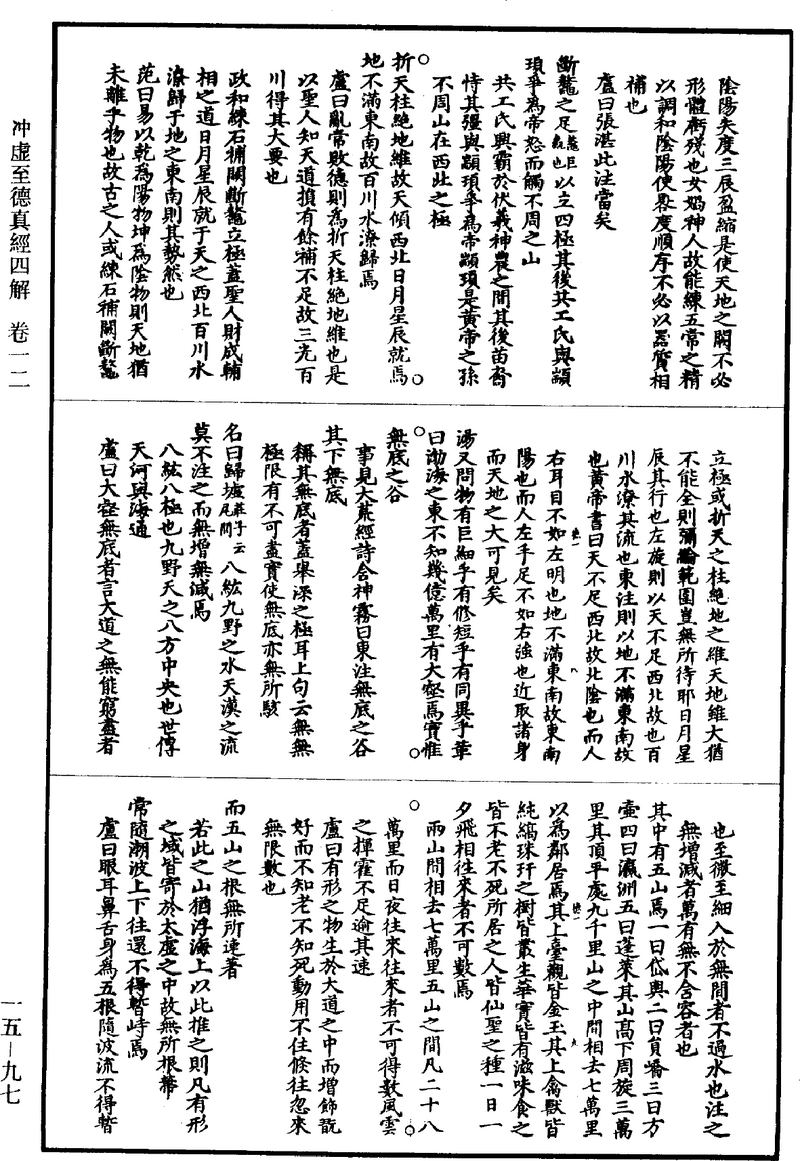 陰陽失度三辰盈縮是使天地之闕不必
形體虧殘也女媧神人故能練五常之精
以調和陰陽使晷度順序不必以器質相
補也
盧曰張湛此注當矣
斷鼇之足鼇巨龜也以立四極其後共工氏與顓
頊爭為帝怒而觸不周之山
共工氏興霸於伏羲神農之間其後苗裔
恃其彊與顓頊爭為帝顓頊是黃帝之孫
不周山在西北之極
折天柱絕地維故天傾西北日月星辰就焉
地不滿東南故百川水潦歸焉
盧曰亂常敗德則為折天柱絕地維也是
以聖人知天道損有餘補不足故三光百
川得其大要也
政和練石補闕斷鼇立極蓋聖人財成輔
相之道日月星辰就于天之西北百川水
潦歸于地之東南則其勢然也
范曰易以乾為陽物坤為陰物則天地猶
未離乎物也故古之人或練石補闕斷鼇
立極或折天之柱絕地之維天地雖大猶
不能全則彌綸範圍豈無所待耶日月星
辰其行也左旋則以天不足西北故也百
川水潦其流也東注則以地不滿東南故
也黃帝書曰天不足西北故北陰也而人
右耳目不如左明也地不滿東南故東南
陽也而人左手足不如右強也近取諸身
而天地之大可見矣
湯又問物有巨細乎有修短乎有同異乎革
曰渤海之東不知幾億萬里有大壑焉實惟
無底之谷
事見大荒經詩含神霧曰東注無底之谷
其下無底
稱其無底者蓋舉深之極耳上句云無無
極限有不可盡實使無底亦無所駭
名曰歸墟莊子云尾閭八紘九野之水天漢之流
莫不注之而無增無減焉
八紘八極也九野天之八方中央也世傳
天河與海通
盧曰大壑無底者言大道之無能窮盡者
也至微至細入於無間者不過水也注之
無增減者萬有無不含容者也
其中有五山焉一曰岱輿二曰員嶠三曰方
壺四曰瀛洲五曰蓬萊其山高下周旋三萬
里其頂平處九千里山之中間相去七萬里
以為鄰居焉其上臺觀皆金玉其上禽獸皆
純縞珠玕之樹皆叢生華實皆有滋味食之
皆不老不死所居之人皆仙聖之種一日一
夕飛相往來者不可數焉
兩山間相去七萬里五山之間凡二十八
萬里而日夜往來往來者不可得數風雲
之揮霍不足逾其速
盧曰有形之物生於大道之中而增飾翫
好而不知老不知死動用不住倏往忽來
無限數也
而五山之根無所連著
若此之山猶浮海上以此推之則凡有形
之域皆寄於太虛之中故無所根蔕
常隨潮波上下往還不得暫峙焉
盧曰眼耳鼻舌身為五根隨波流不得暫
冲虛至德真經四解 卷一二
一五－九七